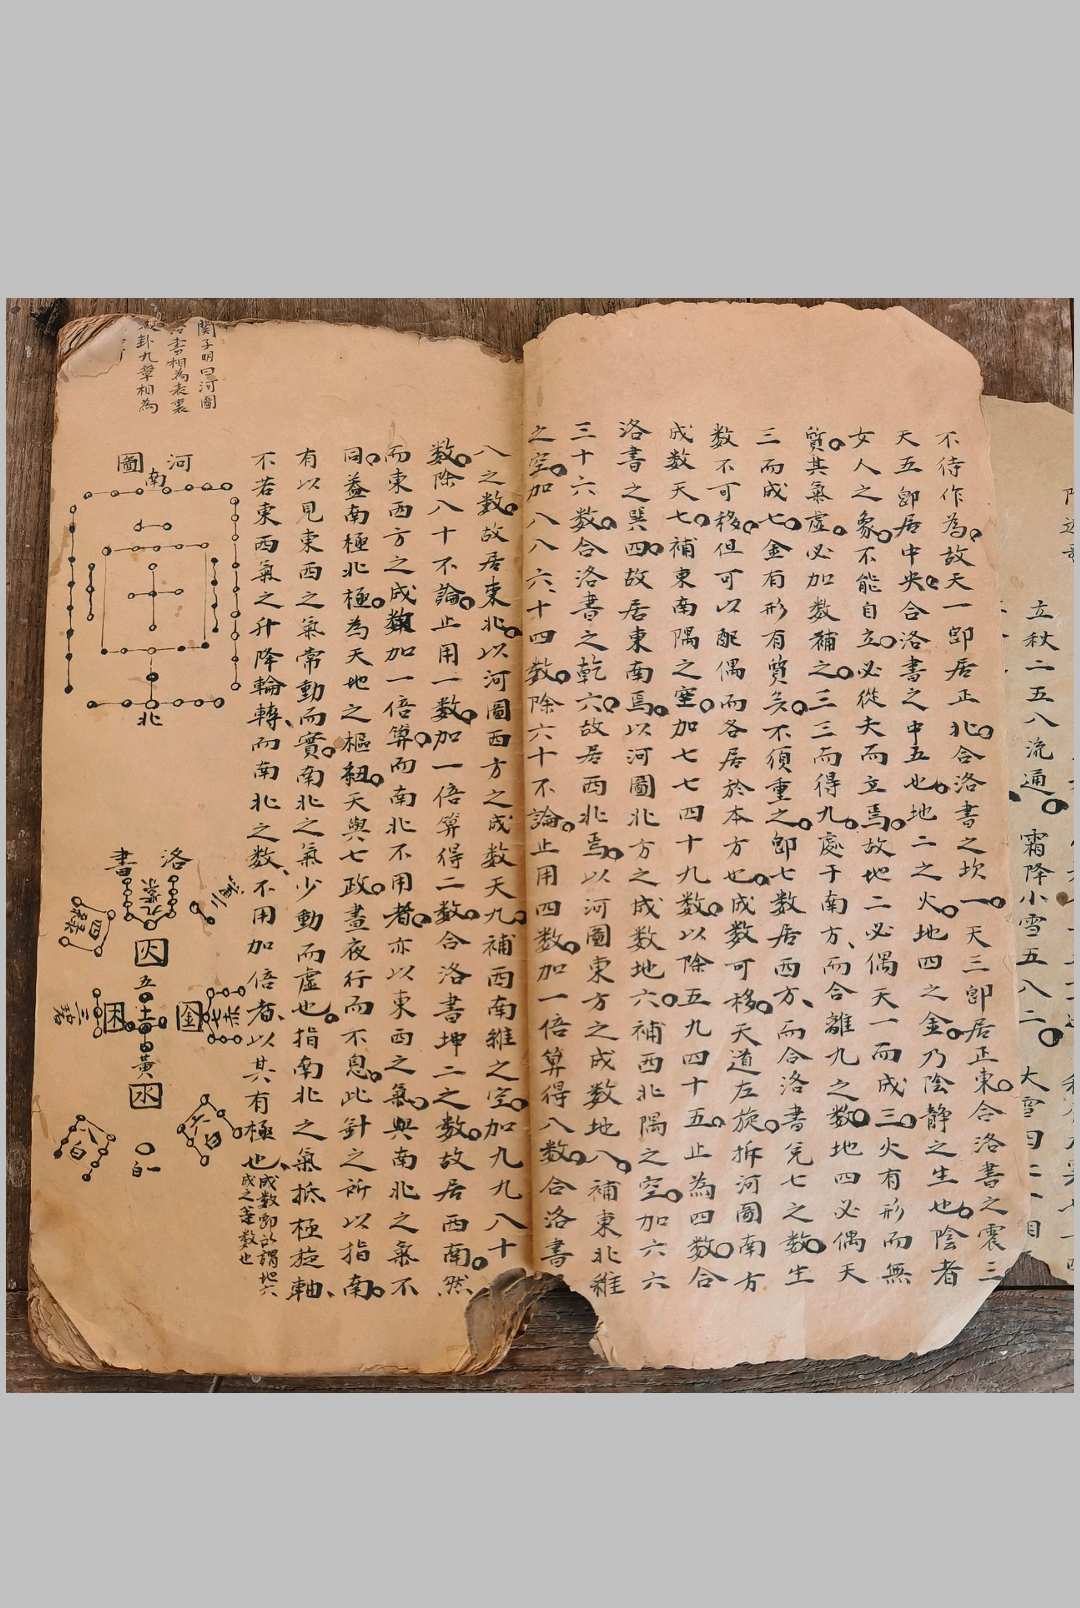 立秋二五八流通霜降小雪五八二大雪四二一自
不待作為故天一即居正北合洛書之坎一天三即居正東合洛書之震三
天五即居中央合洛書之中五也地二之火地四之金乃陰靜之生也陰者
女人之象不能自立必從夫而立焉故地二必偶天一而成三火有形而無
質其氣虛必加数補之三三而得九處于南方而合離九之数地四必偶天
三而成七金有形有質矣不須重之即七数居西方而合洛書兌七之数生
数不可移但可以配偶而各居於本方也成数可移天道左旋拆河圖南方
成数天七補東南隅之空加七七四十九数以除五九四十五止為四数合
洛書之巽四故居東南焉以河圖北方之成数地六補西北隅之空加六六
三十六数合洛書之乾六故居西北焉以河圖東方之成数地八補東北維
之空加八八六十四数除六十不論止用四数加一倍算得八数合洛書
八之数故居東北以河圖西方之成数天九補西南維之空加九九八十
数除八十不論止用一数加一倍算得二数合洛書坤二之数故居西南然
而東西方之成数加一倍算而南北不用者亦以東西之氣與南北之氣不
同蓋南極北極為天地之樞紐天與七政晝夜行而不息此針之所以指南
有以見東西之氣常動而實南北之氣少動而虛也指南北之氣抵極旋軸
不若東西氣之升降輪轉而南北之数不用加倍者以其有極也成数即所謂地六
成之等数也
關子明曰河圖
洛書相為表裏
八卦九章相為
河圖
南
北
洛書
九紫
四綠
火
五
土
黃
三碧
木
金
七赤
水
八白
一白
六白